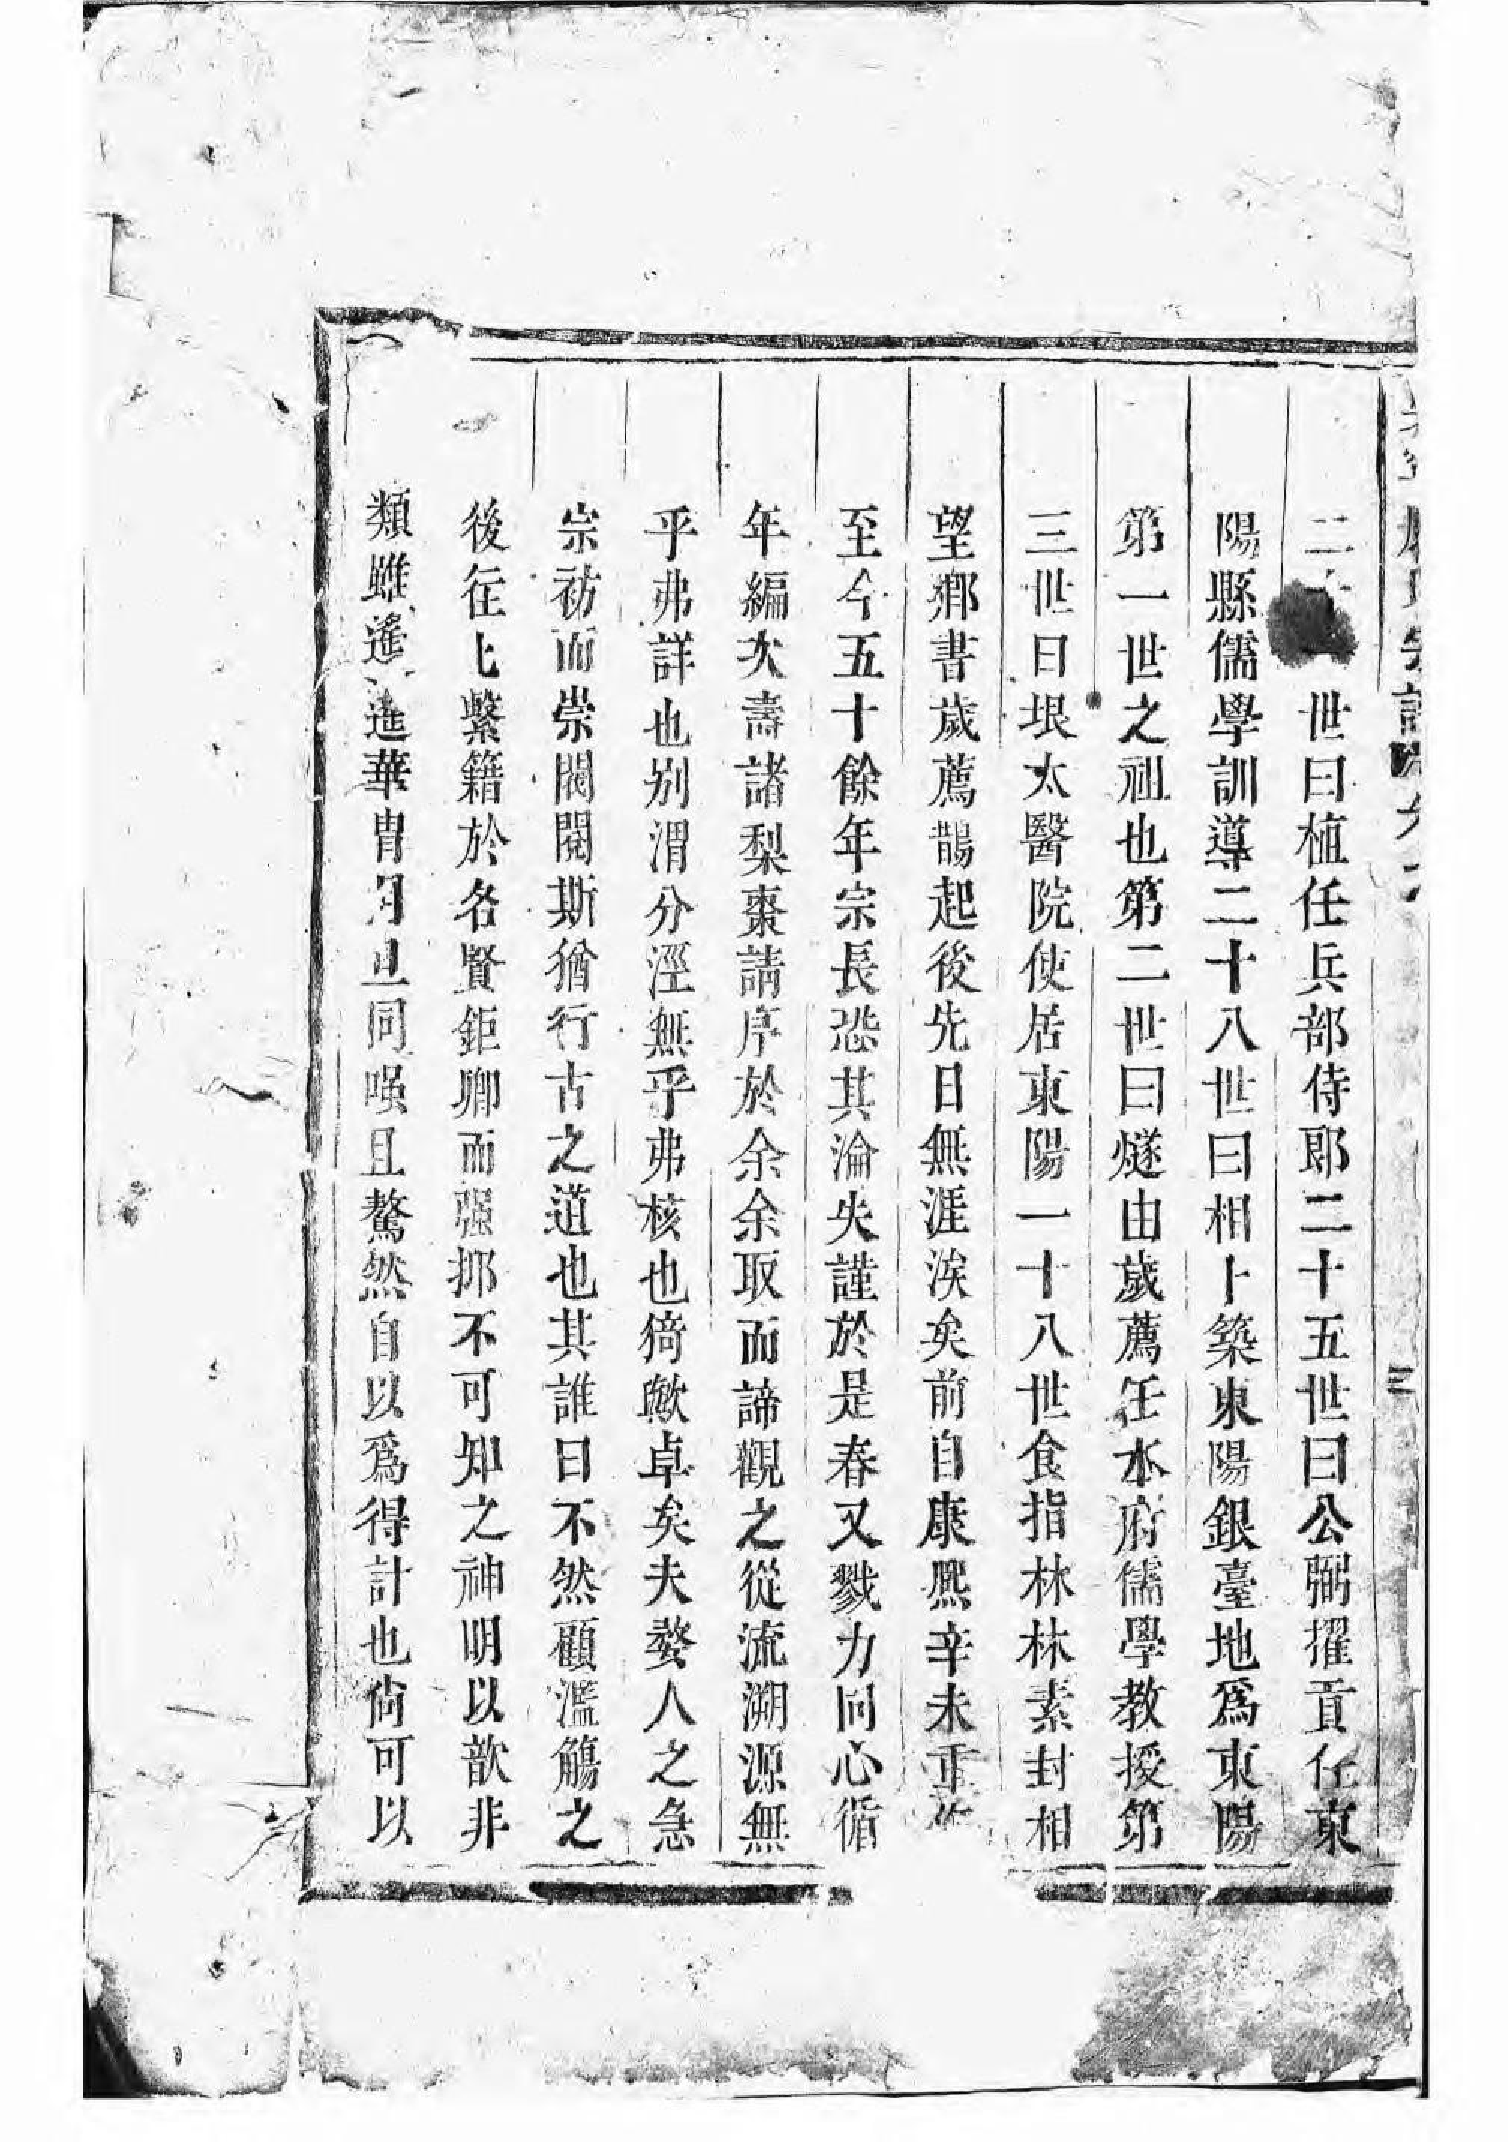 世曰植任兵部侍郎二十五世曰公弼擢貢任東
陽縣儒學訓導二十八世曰相卜築東陽銀臺地爲東陽
第一世之祖也第二世曰燧由歲薦任本府儒學教授第
三世曰垠太醫院使居東陽一十八世食指林林素封相
望鄉書歲薦鵲起後先日無涯涘矣前自康熙辛未重
至今五十餘年宗長恐其淪失謹於是春又戮力同心循
年編次壽諸梨棗請序於余余取而諦觀之從流溯源無
乎弗詳也别渭分涇無乎弗核也猗歟卓矣夫婺人之急
宗祊而崇閥閱斯猶行古之道也其誰曰不然顧濫觴之
後往上繫籍於名賢鉅卿而強挪不可知之神明以歆非
類雖遙遙華胄同嗤且鰲然自以爲得計也尙可以
三